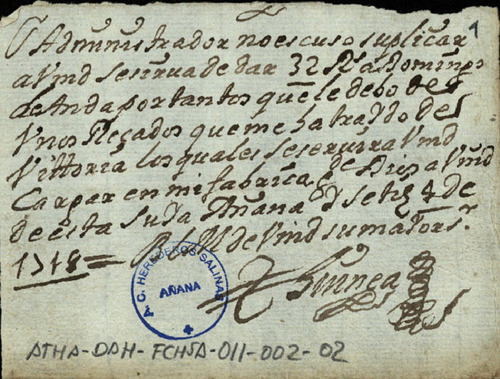 Administrador no escuso suplicar
a Vmd se sirva de dar 32 Rs a Domingo
de Anda por tantos que le debo de
Unos Recados que me ha traydo de
Vittoria los quales se servira Vmd
Cargar en mi fabrica de Dios a Vmd
de esta suya Añana y 4 de
1718 = B L M de Vmd su maior s.r
A.C. HEREDEROS SALINAS
AÑANA
ATHA-DAH-FCHSA-011-002-02